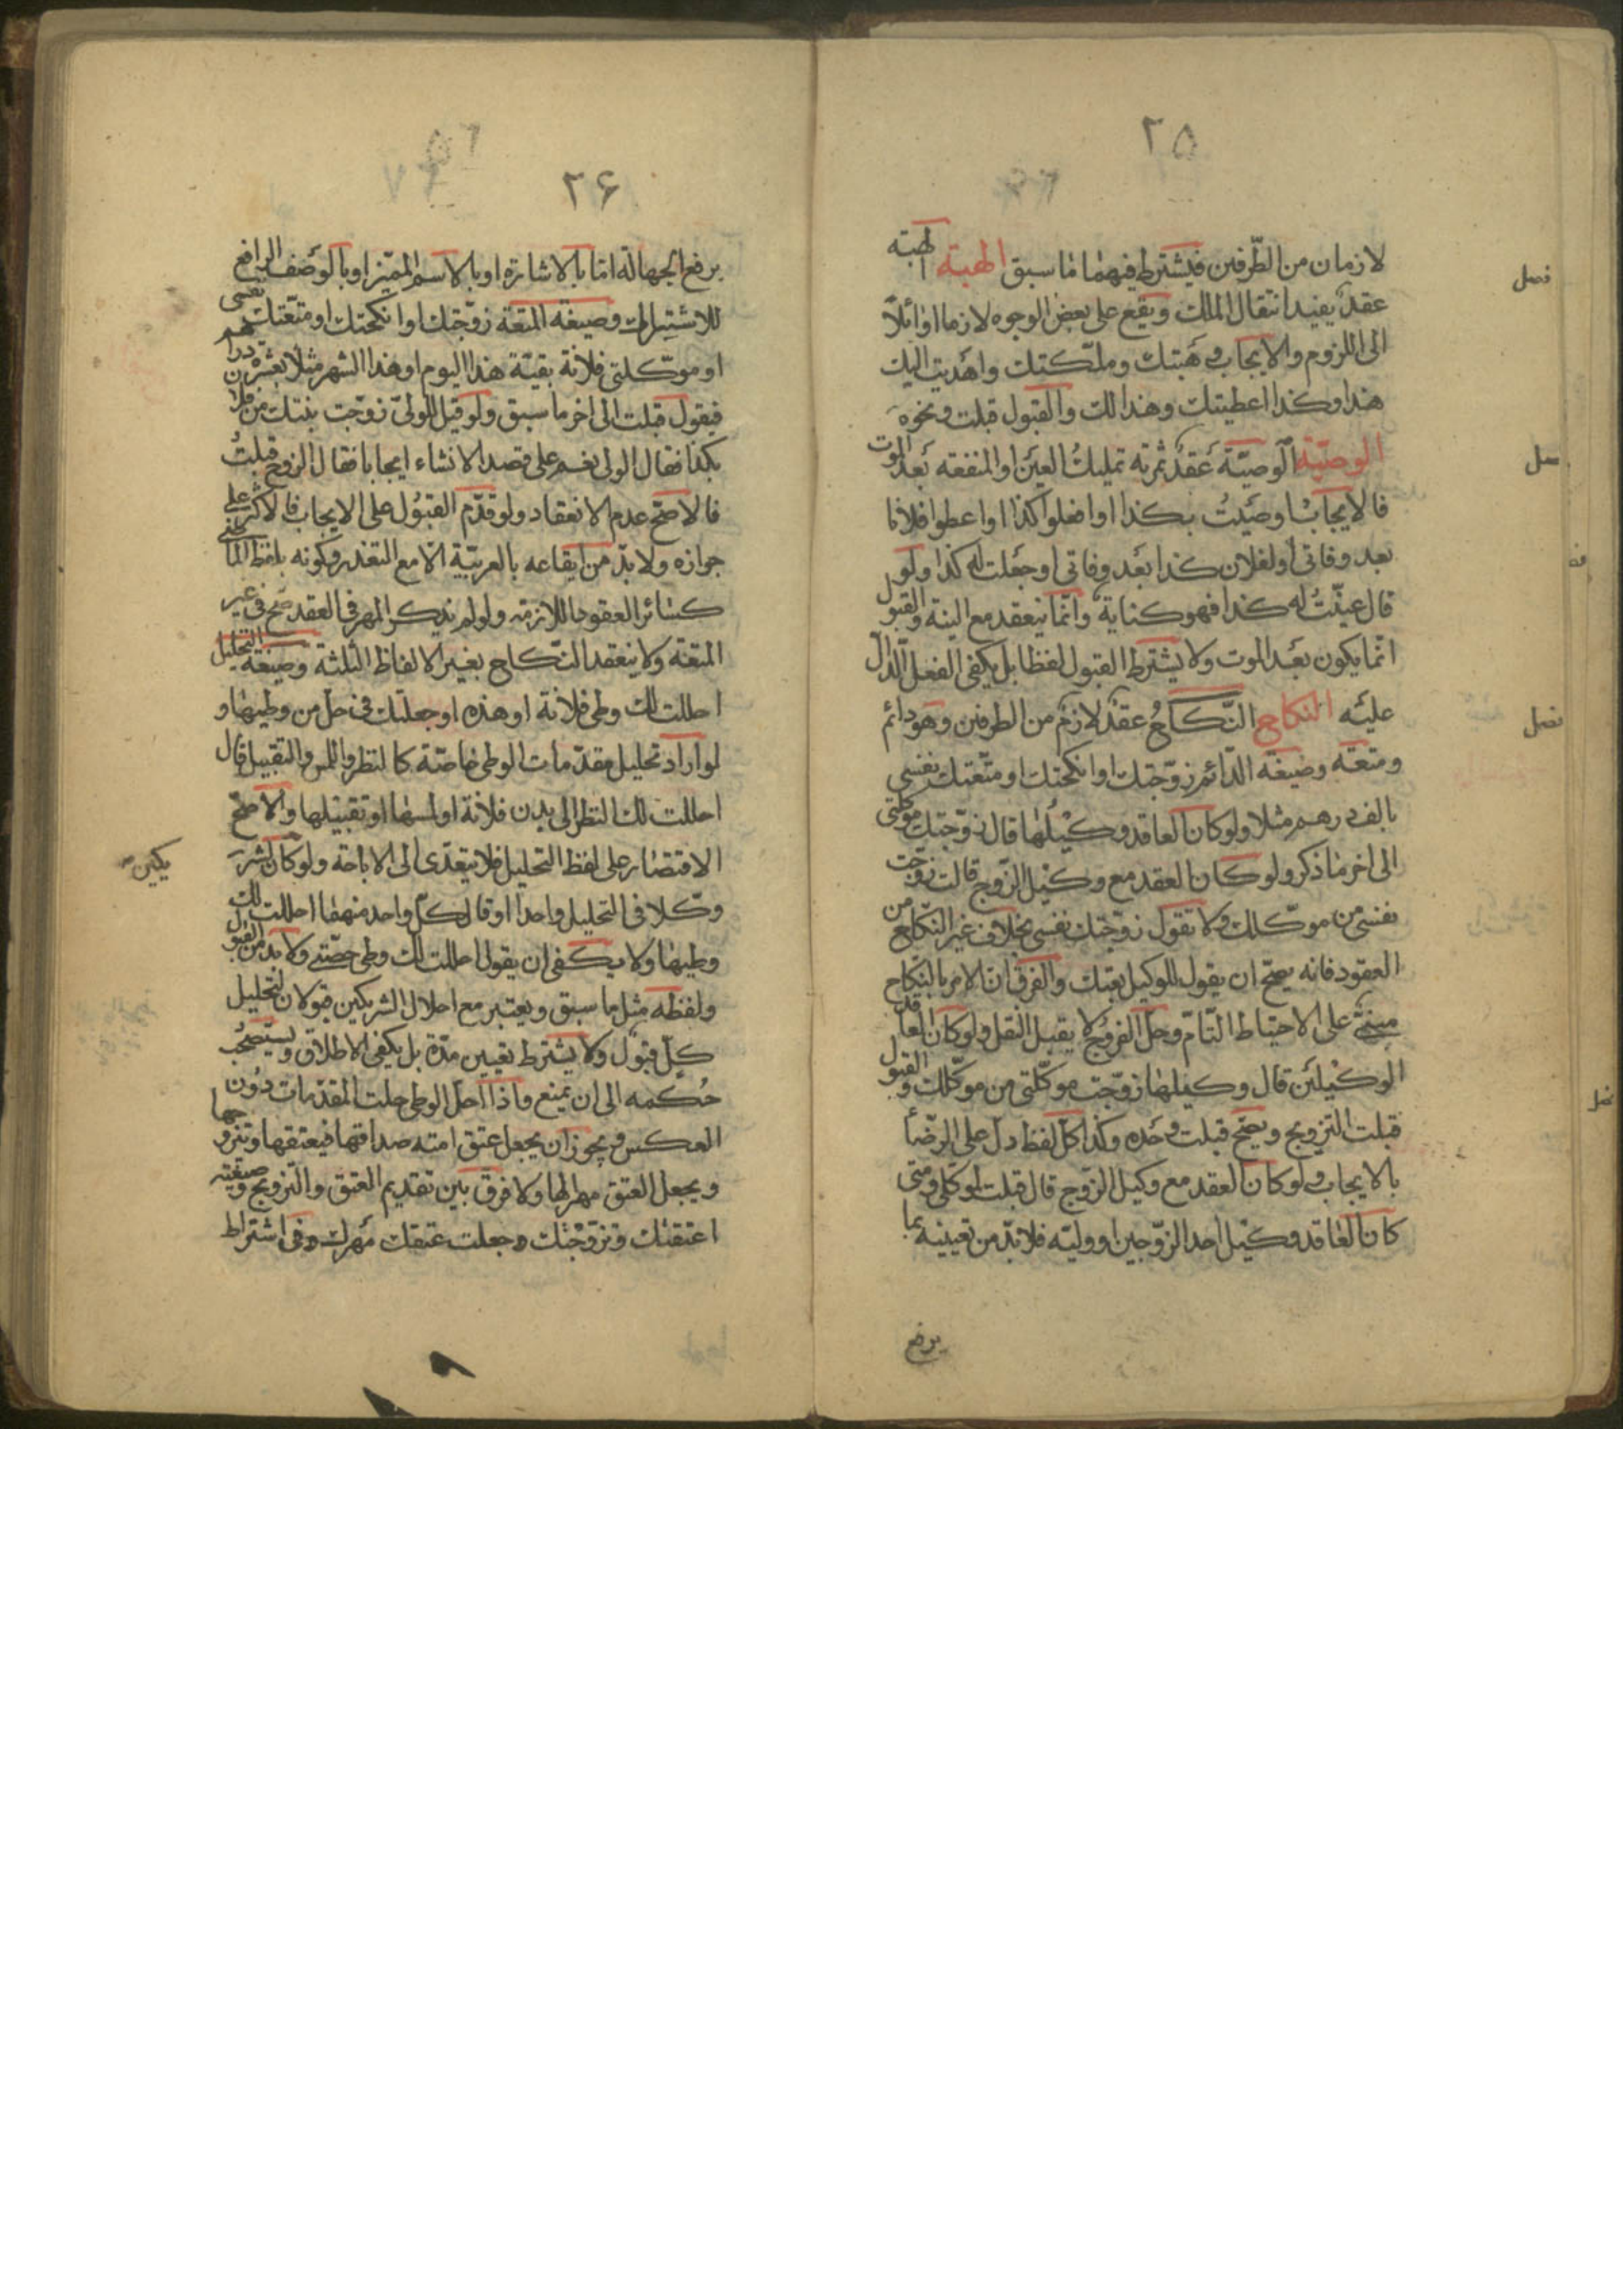 ٢٥
لازمان من الطّرفين فيشترط فيهما ما سبق الهبة الهبة
فصل
عقد يفيد انتقال الملك ويقع على بعض الوجوه لازما او ائلا
الى اللزوم والايجاب وهبتك وملّكتك واهديت اليك
هذا وكذا اعطيتك وهذا لك والقبول قبلت ونحوه
الوصيّة الوصيّة عقد ثمرته تمليك العين او المنفعة بعد الموت
فالايجاب اوصيت بكذا او افعلوا كذا او اعطوا فلانا
بعد وفاتى او لفلان كذا بعد وفاتى او جعلت له كذا ولو
قال عيّنت له كذا فهو كناية وانّما ينعقد مع النية والقبول
انّما يكون بعد الموت ولا يشترط القبول لفظا بل يكفى الفعل الدّال
عليه النكاح النّكاح عقد لازم من الطرفين وهو دائم
فصل
ومتعة وصيغة الدّائم زوّجتك او انكحتك او متّعتك نفسى
بالف درهم مثلا ولو كان العاقد وكيلها قال زوّجتك موكلتى
الى اخر ما ذكر ولو كان العقد مع وكيل الزّوج قالت زوّجت
نفسى من موكّلك ولا تقول زوّجتك نفسى بخلاف غير النّكاح من
العقود فانه يصحّ ان يقول للوكيل بعتك والفرق انّ الامر بالنّكاح
مبنىّ على الاحتياط التّام وحلّ الفروج لا يقبل النقل ولو كان العاقد
الوكيلين قال وكيلها زوّجت موكّلتى من موكّلك والقبول
قبلت التزويج ويصحّ قبلت وحده وكذا كلّ لفظ دلّ على الرّضا
بالايجاب ولو كان العقد مع وكيل الزّوج قال قبلت لموكّلى ومتى
كان العاقد وكيل احد الزّوجين او وليّه فلابدّ من تعيينه بما
يرفع
٢۶
يرفع الجهالة امّا بالاشارة او بالاسم المميّز او بالوصف الرافع
للاشتراك وصيغة المتعة زوّجتك او انكحتك او متّعتك نفسى
او موكّلتى فلانة بقيّة هذا اليوم او هذا الشهر مثلا بعشرة دراهم
فيقول قبلت الى اخر ما سبق ولو قيل للولىّ زوّجت بنتك من فلان
بكذا فقال الولى نعم على قصد الانشاء ايجابا فقال الزوج قبلت
فالاصحّ عدم الانعقاد ولو قدّم القبول على الايجاب فالاكثر على
جوازه ولابدّ من ايقاعه بالعربيّة الا مع التعذر وكونه بلفظ الماضى
كسائر العقود اللازمة ولو لم يذكر المهر فى العقد صحّ فى غير
المتعة ولا ينعقد النّكاح بغير الالفاظ الثلثة وصيغة التحليل
احللت لك وطى فلانة او هذه او جعلتك فى حلّ من وطيها و
لو اراد تحليل مقدّمات الوطى خاصّة كالنظر واللمس والتقبيل قال
احللت لك النظر الى بدن فلانة او لمسها او تقبيلها والاصحّ
الاقتصار على لفظ التحليل فلا يتعدّى الى الاباحة ولو كان لشر
يكين
وكّلا فى التحليل واحدا او قال لكلّ واحد منهما احللت لك
وطيها ولا يكفى ان يقول احللت لك وطى حصّتى ولابد من القبول
ولفظه مثل ما سبق ويعتبر مع احلال الشريكين قبولان لتحليل
كلّ قبول ولا يشترط تعيين مدّة بل يكفى الاطلاق ويستصحب
حكمه الى ان يمنع واذا احلّ الوطى حلت المقدّمات دون
العكس ويجوز ان يجعل عتق امته صداقها فيعتقها ويتزوجها
ويجعل العتق مهرا لها ولا فرق بين تقديم العتق والتزويج وصيغته
اعتقتك وتزوّجتك وجعلت عتقك مهرك وفى اشتراط